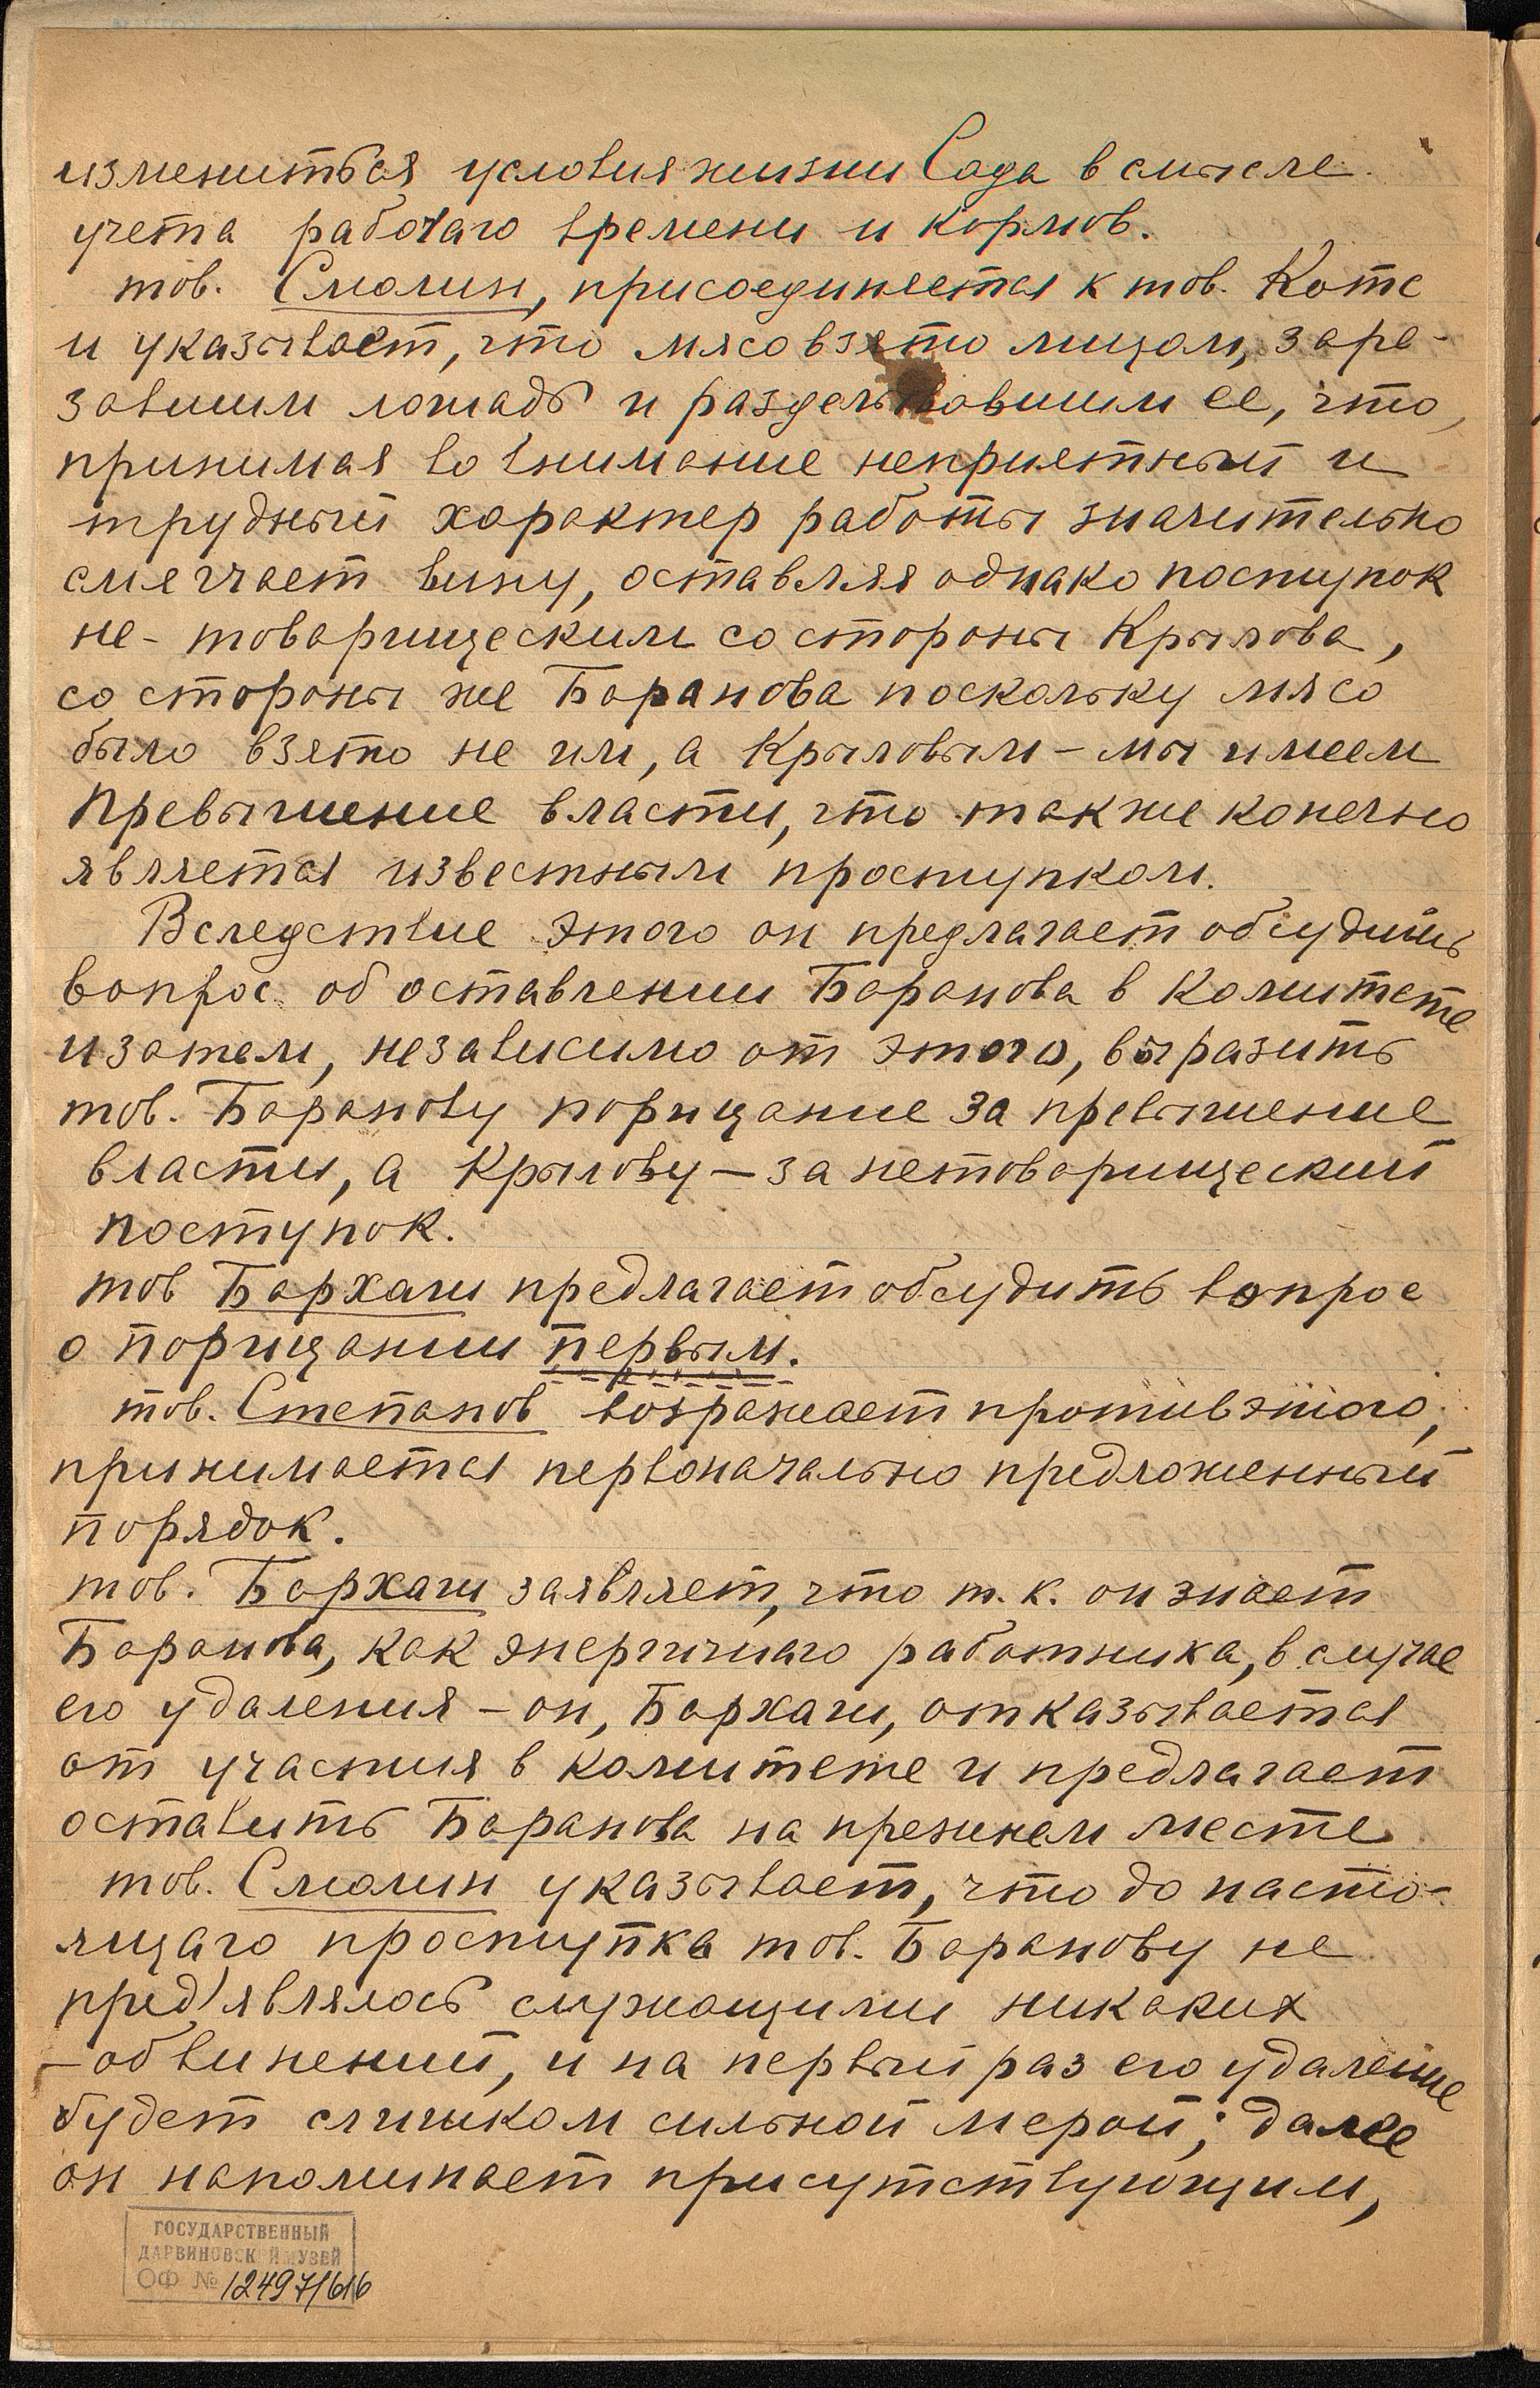 изменитьбся условия жизни Сада в смысле
учета рабочаго времени и кормов.
тов. Смолин, присоединяется к тов. Котс
и указывает, что мясо взято лицом, заре-
завшим лошадь и разделывавшим ее, что,
принимая во внимание неприятный и
трудный характер работы значительно
смягчает вину, оставляя однако поступок
не-товарищеским со стороны Крылова,
со стороны же Баранова поскольку мясо
было взято не им, а Крыловым - мы имеем
превышение власти, что также конечно
является известным проступком.
Вследствие этого он предлагает обсудить
вопрос об оставлении Баранова в Комитете
и затем, независимо от этого, выразить
тов. Баранову порицание за превышение
власти, а Крылову — за нетоварищеский
поступок.
тов Бархаш предлагает обсудить вопрос
о порицании первым.
тов. Степанов возражает против этого,
принимается первоначально предложенный
порядок.
тов. Бархаш заявляет, что т.к. он знает
Баранова, как энергичнаго работника, в случае
его удаления - он, Бархаш, отказывается
от участия в комитете и предлагает
оставить Баранова на прежнем месте
тов. Смолин указывает, что до насто-
ящаго проступка тов. Баранову не
пред'являлось служащими никаких
- обвинений, и на первый раз его удаление
будет слишком сильной мерой; далее
он напоминает присутствующим,
ГОСУДАРСТВЕННЫЙ
ДАРВИНОВСКИЙ МУЗЕЙ
ОФ № 12497/616